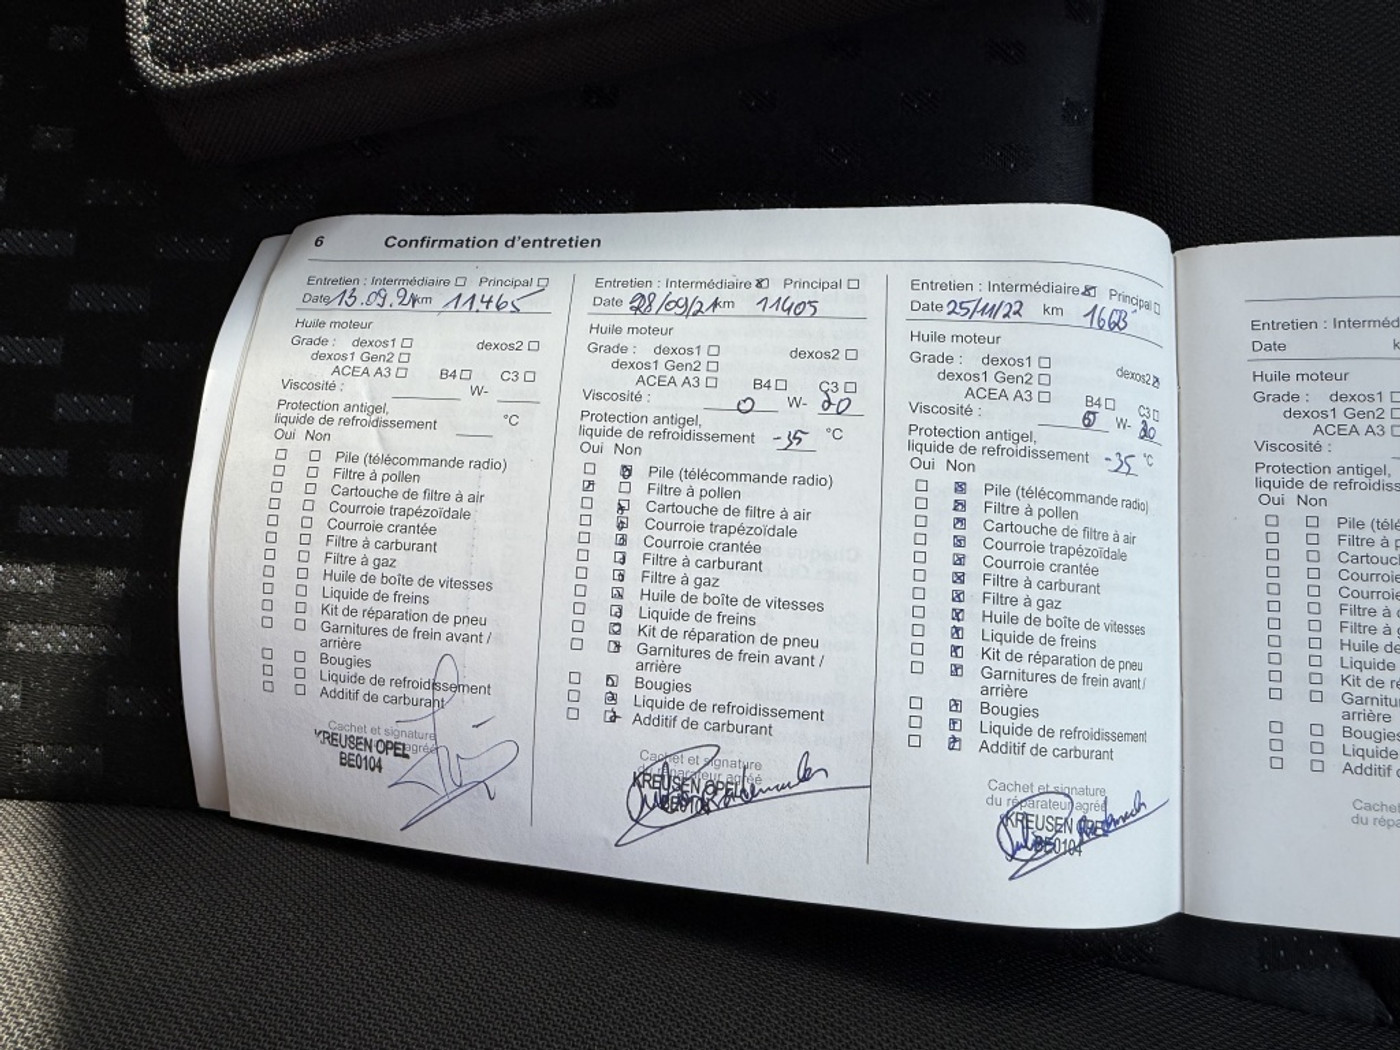 6 Confirmation d'entretien
Entretien : Intermédiaire Principal
Date 13.09.21 km 11465
Huile moteur
Grade : dexos1 dexos2
dexos1 Gen2
ACEA A3 B4 C3
Viscosité : W-
Protection antigel,
liquide de refroidissement °C
Oui Non
Pile (télécommande radio)
Filtre à pollen
Cartouche de filtre à air
Courroie trapézoïdale
Courroie crantée
Filtre à carburant
Filtre à gaz
Huile de boîte de vitesses
Liquide de freins
Kit de réparation de pneu
Garnitures de frein avant /
arrière
Bougies
Liquide de refroidissement
Additif de carburant
Cachet et signature
agréé
KREUSEN OPEL
BE0104
Entretien : Intermédiaire Principal
Date 28/09/21 km 11405
Huile moteur
Grade : dexos1 dexos2
dexos1 Gen2
ACEA A3 B4 C3
Viscosité : 0 W- 20
Protection antigel,
liquide de refroidissement -35 °C
Oui Non
Pile (télécommande radio)
Filtre à pollen
Cartouche de filtre à air
Courroie trapézoïdale
Courroie crantée
Filtre à carburant
Filtre à gaz
Huile de boîte de vitesses
Liquide de freins
Kit de réparation de pneu
Garnitures de frein avant /
arrière
Bougies
Liquide de refroidissement
Additif de carburant
Cachet et signature
du réparateur agréé
KREUSEN OPEL
BE0104
Entretien : Intermédiaire Principal
Date 25/11/22 km
Huile moteur
Grade : dexos1 dexos2
dexos1 Gen2
ACEA A3 B4 C3
Viscosité : 0 W-
Protection antigel,
liquide de refroidissement -35 °C
Oui Non
Pile (télécommande radio)
Filtre à pollen
Cartouche de filtre à air
Courroie trapézoïdale
Courroie crantée
Filtre à carburant
Filtre à gaz
Huile de boîte de vitesses
Liquide de freins
Kit de réparation de pneu
Garnitures de frein avant /
arrière
Bougies
Liquide de refroidissement
Additif de carburant
Cachet et signature
du réparateur agréé
KREUSEN OPEL
BE0104
Entretien : Interméd
Date k
Huile moteur
Grade : dexos1
dexos1 Gen2
ACEA A3
Viscosité :
Protection antigel,
liquide de refroidiss
Oui Non
Pile (télé
Filtre à p
Cartouc
Courroie
Courroie
Filtre à c
Filtre à g
Huile de
Liquide
Kit de ré
Garnitu
arrière
Bougies
Liquide
Additif c
Cache
du répa